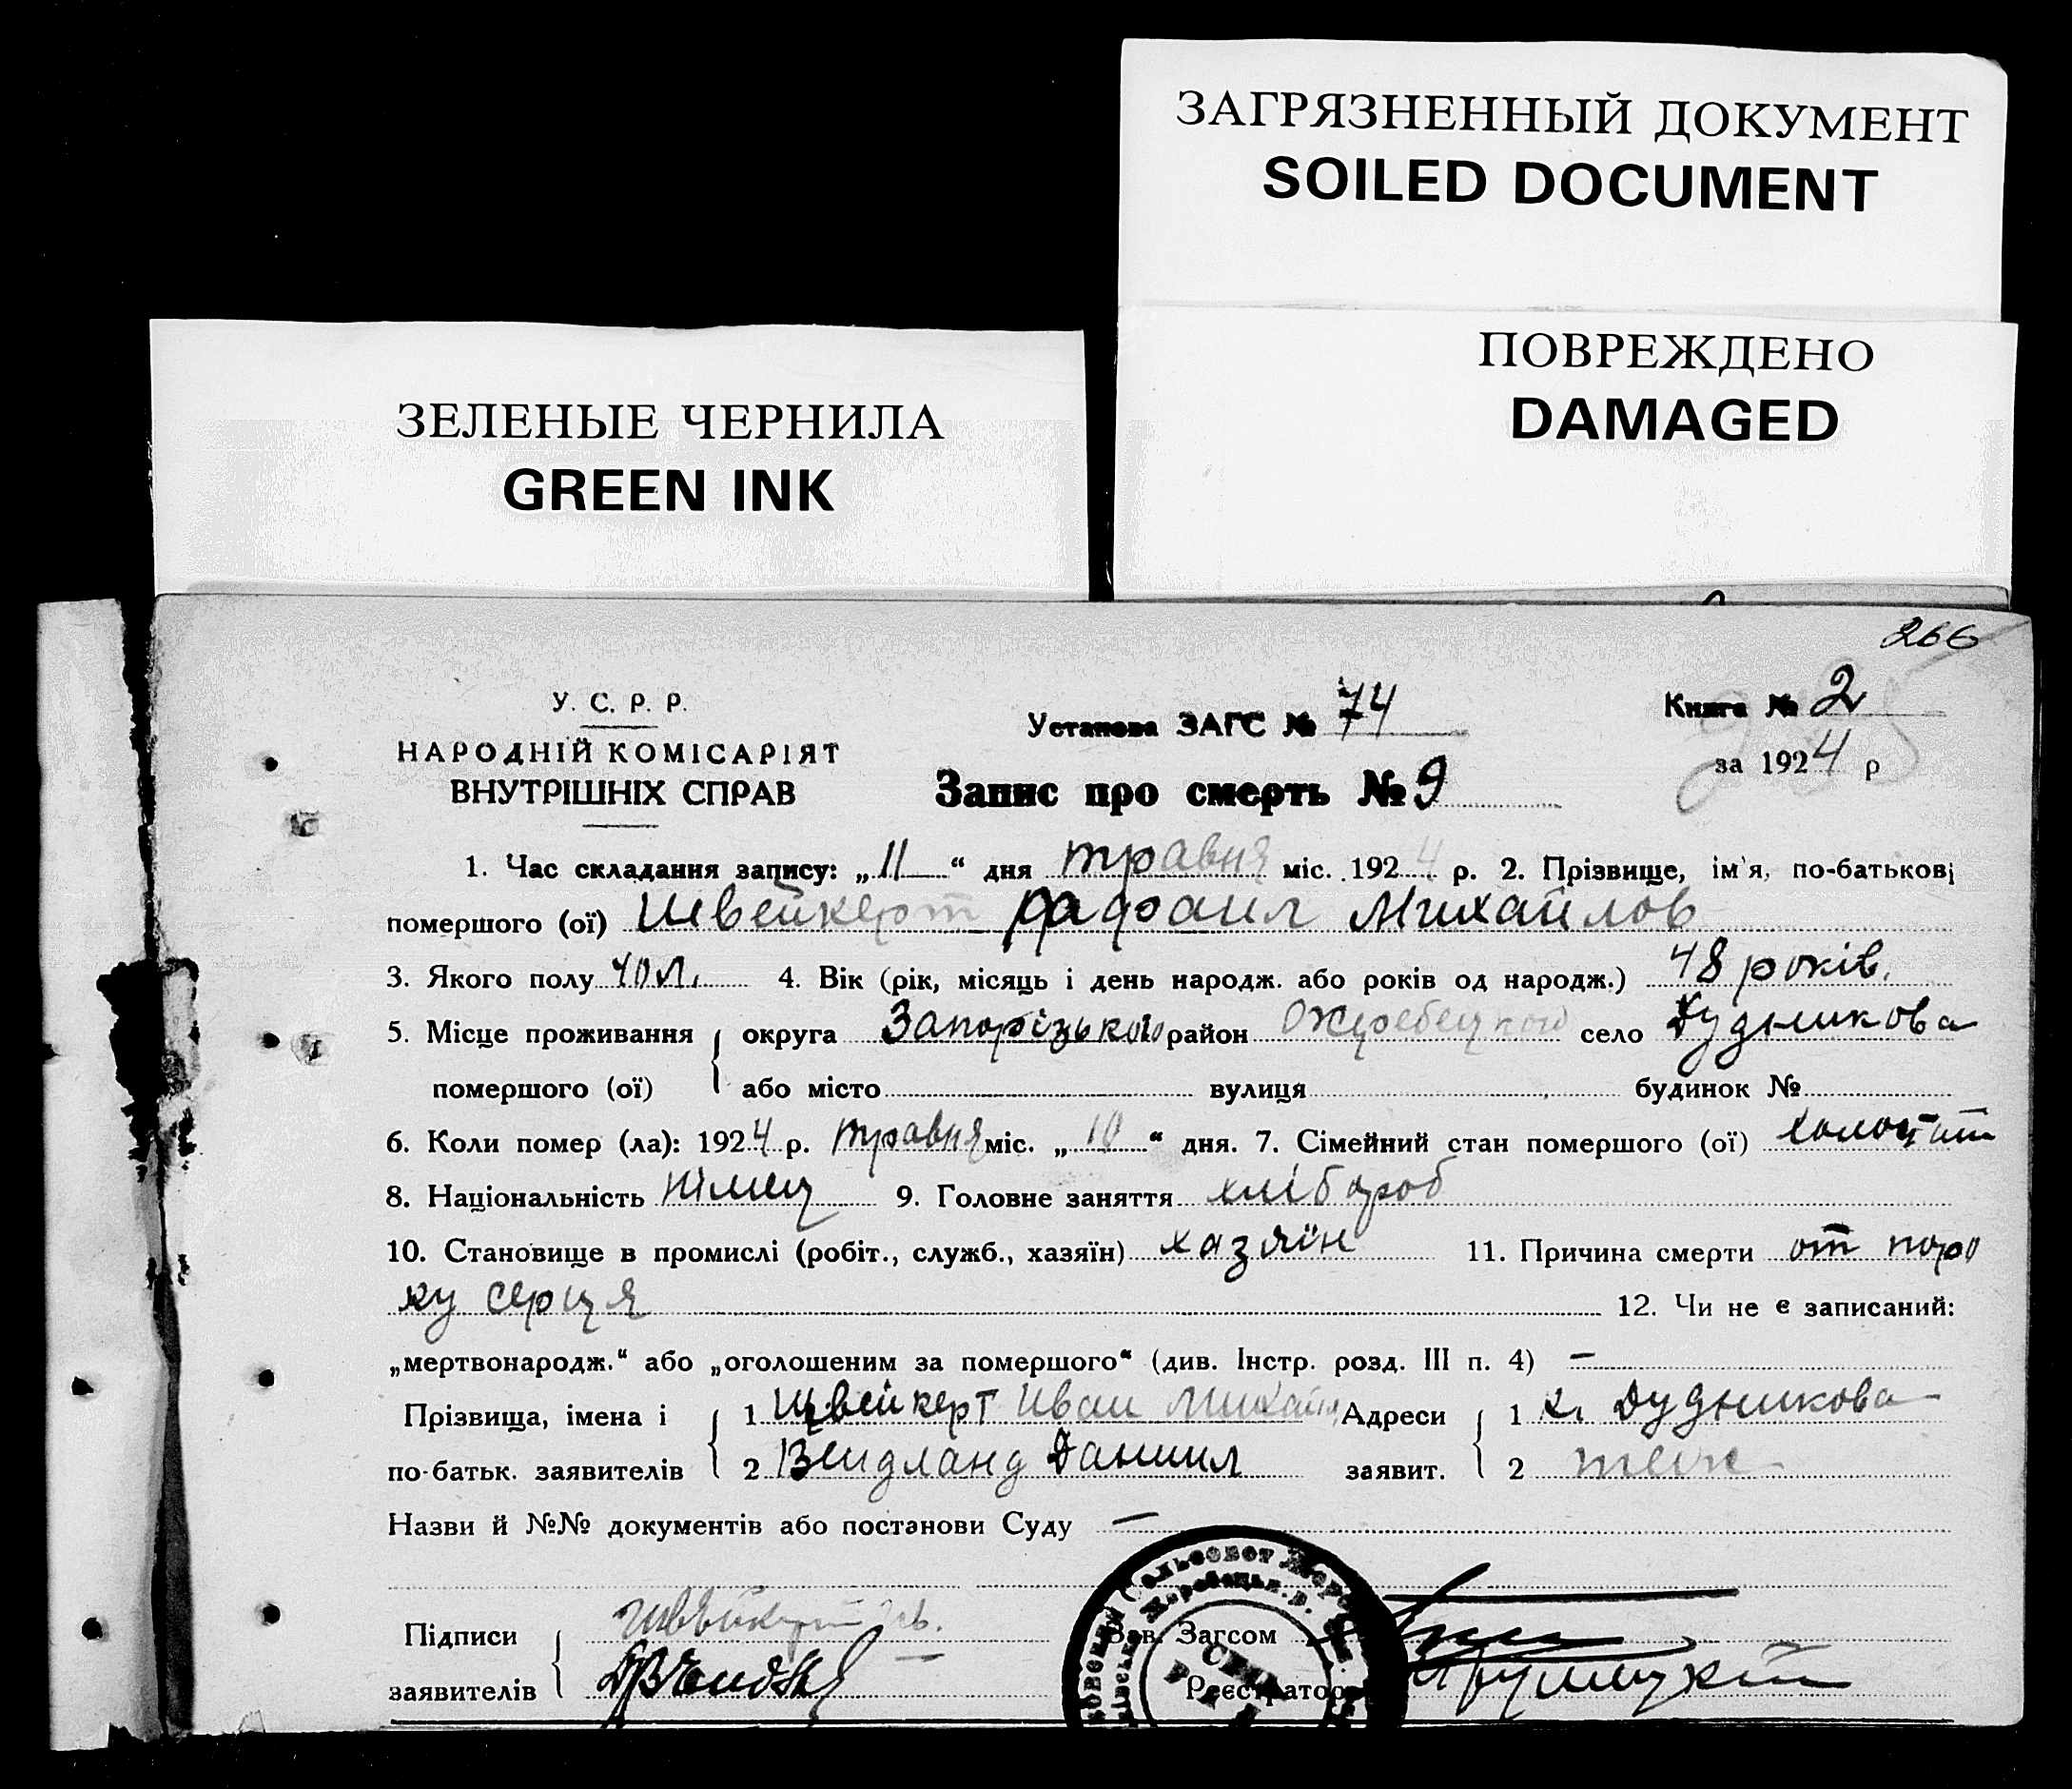 ЗАГРЯЗНЕННЫЙ ДОКУМЕНТ
SOILED DOCUMENT
ПОВРЕЖДЕНО
DAMAGED
ЗЕЛЕНЫЕ ЧЕРНИЛА
GREEN INK
266
У. С. Р. Р.
НАРОДНІЙ КОМІСАРІЯТ
ВНУТРІШНІХ СПРАВ
Установа ЗАГС № 74
Книга № 2
за 1924 р
Запис про смерть № 9
1. Час складання запису: „11“ дня травня міс. 1924 р. 2. Прізвище, ім'я, по-батькові
помершого (ої) Швейкерт Рафаил Михайлов
3. Якого полу чол. 4. Вік (рік, місяць і день народж. або років од народж.) 48 років.
5. Місце проживання округа Запорізького район село Дудникова
помершого (ої) або місто вулиця будинок №
6. Коли помер (ла): 1924 р. травня міс. „10“ дня. 7. Сімейний стан помершого (ої)
8. Національність німец 9. Головне заняття хлібороб
10. Становище в промислі (робіт., служб., хазяїн) хазяїн 11. Причина смерти от поро
ку серця 12. Чи не є записаний:
„мертвонародж.“ або „оголошеним за помершого“ (див. Інстр. розд. III п. 4) —
Прізвища, імена і 1 Швейкерт Иван Михайл Адреси 1 к. Дудникова
по-батьк. заявителів 2 Вейдланд Даниил заявит. 2
Назви й №№ документів або постанови Суду —
Підписи Зав. Загсом
заявителів Реєстратор